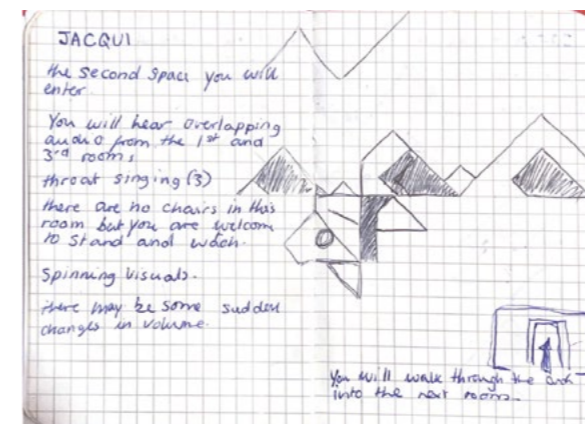 JACQUI
the second space you will
enter
You will hear overlapping
audio from the 1st and
3rd rooms
throat singing (3)
there are no chairs in this
room but you are welcome
to stand and watch.
Spinning visuals.
there may be some sudden
changes in volume.
You will walk through the arch
into the next room.